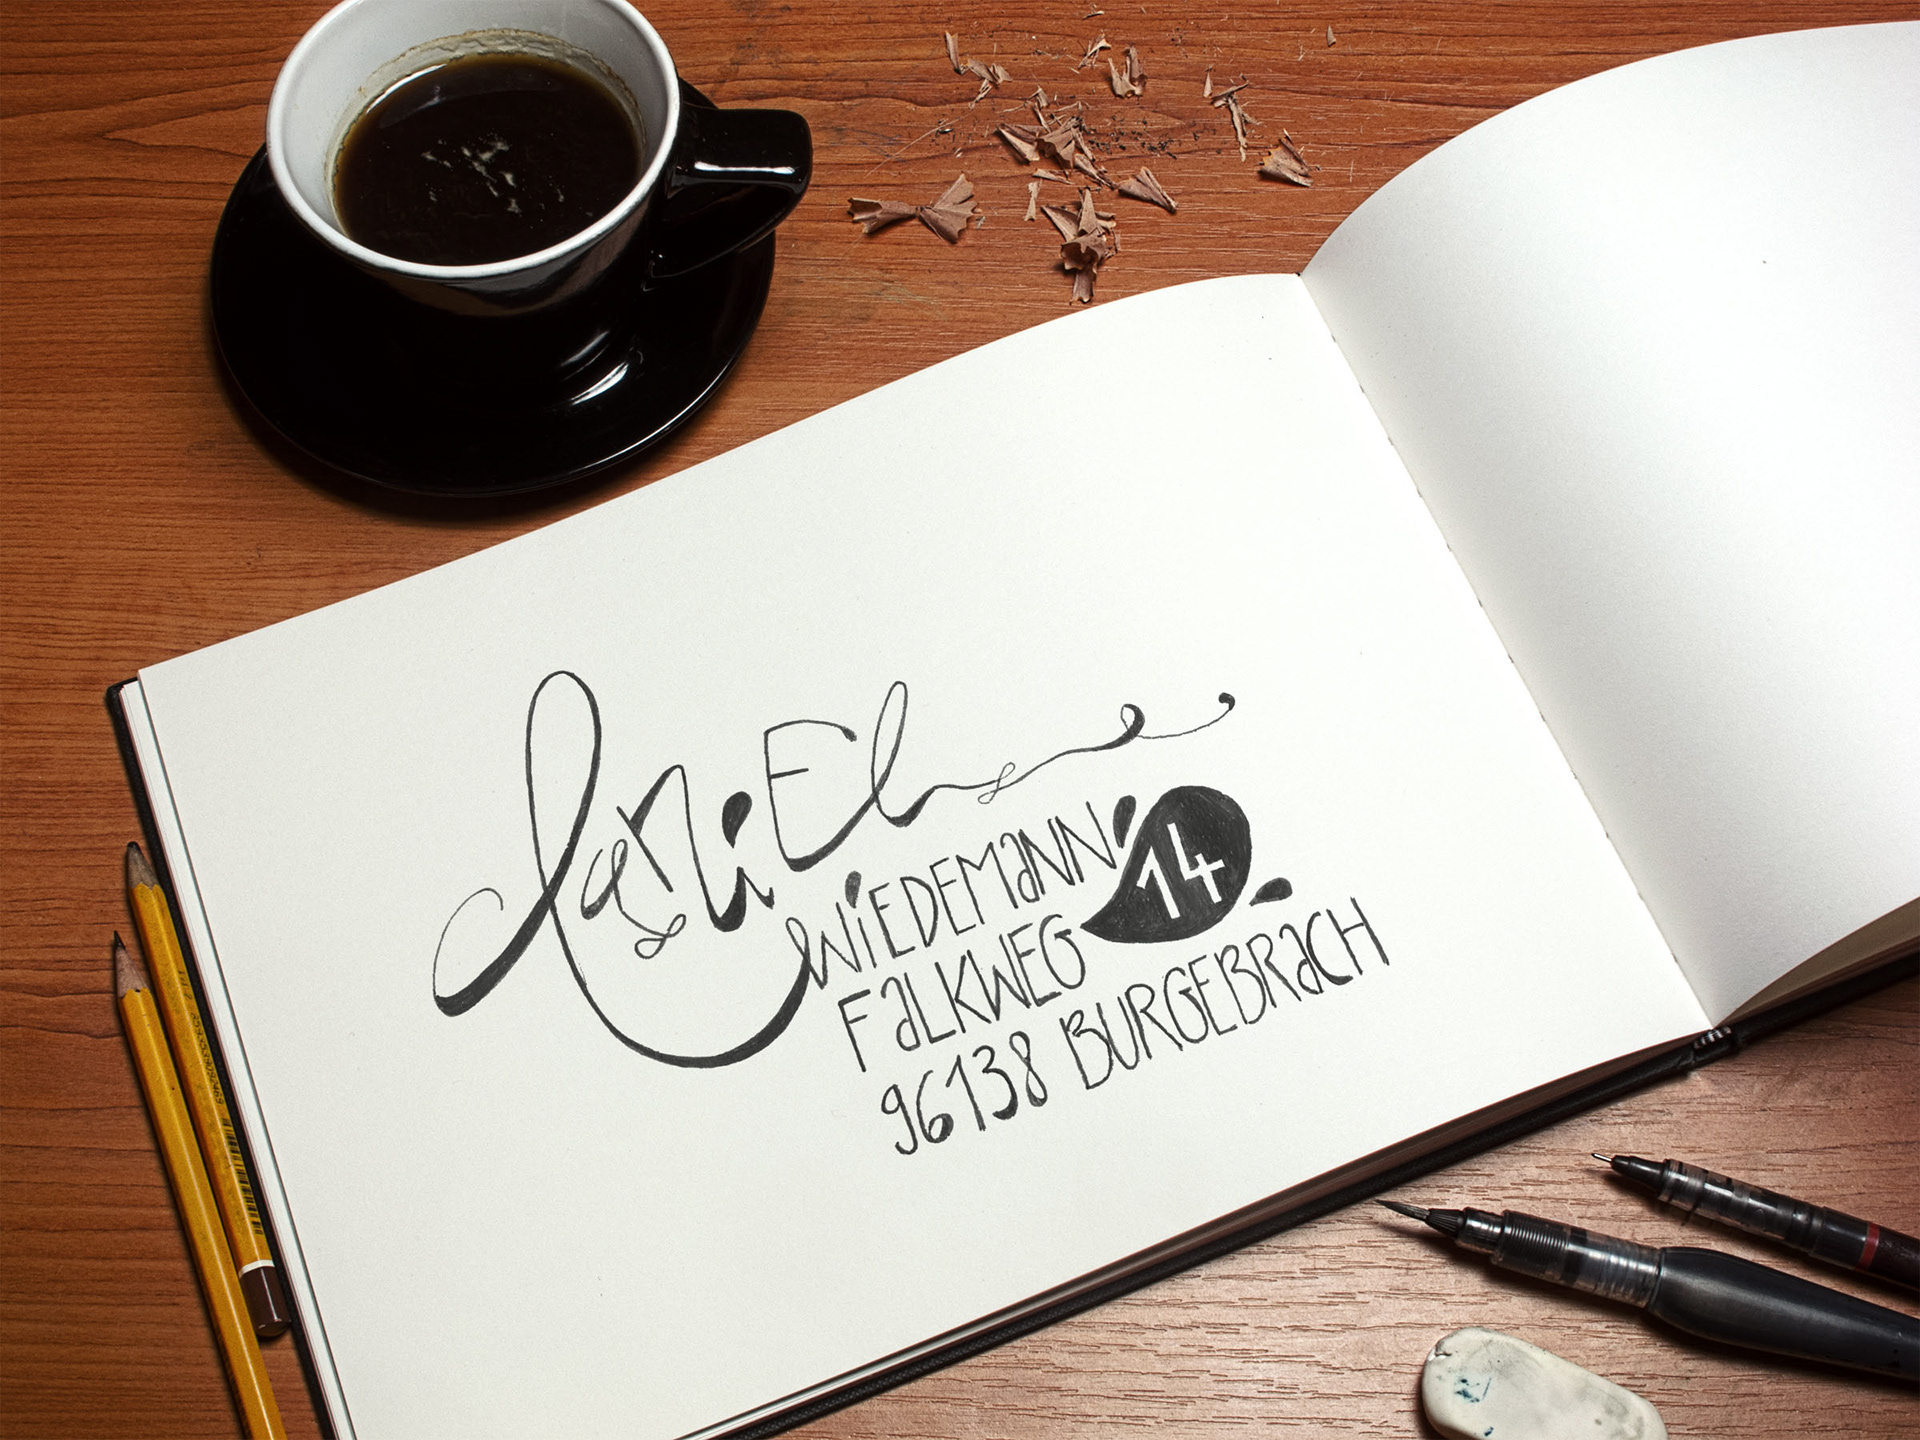 DaNiEl
WiEDEMaNN
FaLKWEG 14
96138 BURGEBRaCH